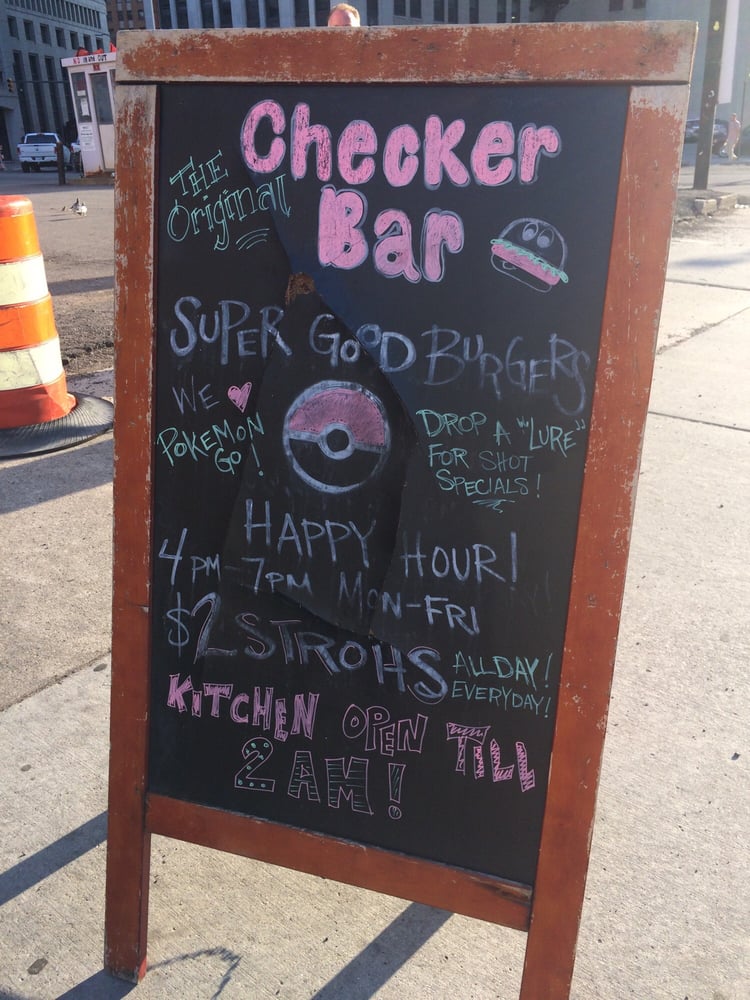 THE
Original
Checker
Bar
SUPER GOOD BURGERS
WE ♥
POKEMON
GO!
DROP A "LURE"
FOR SHOT
SPECIALS!
HAPPY HOUR!
4PM-7PM MON-FRI
$2 STROHS
ALL DAY!
EVERYDAY!
KITCHEN OPEN TILL
2AM!